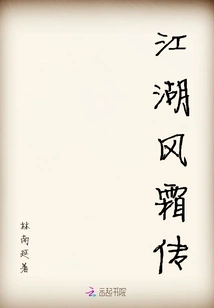 江湖风霜传
林南延著
云起书院